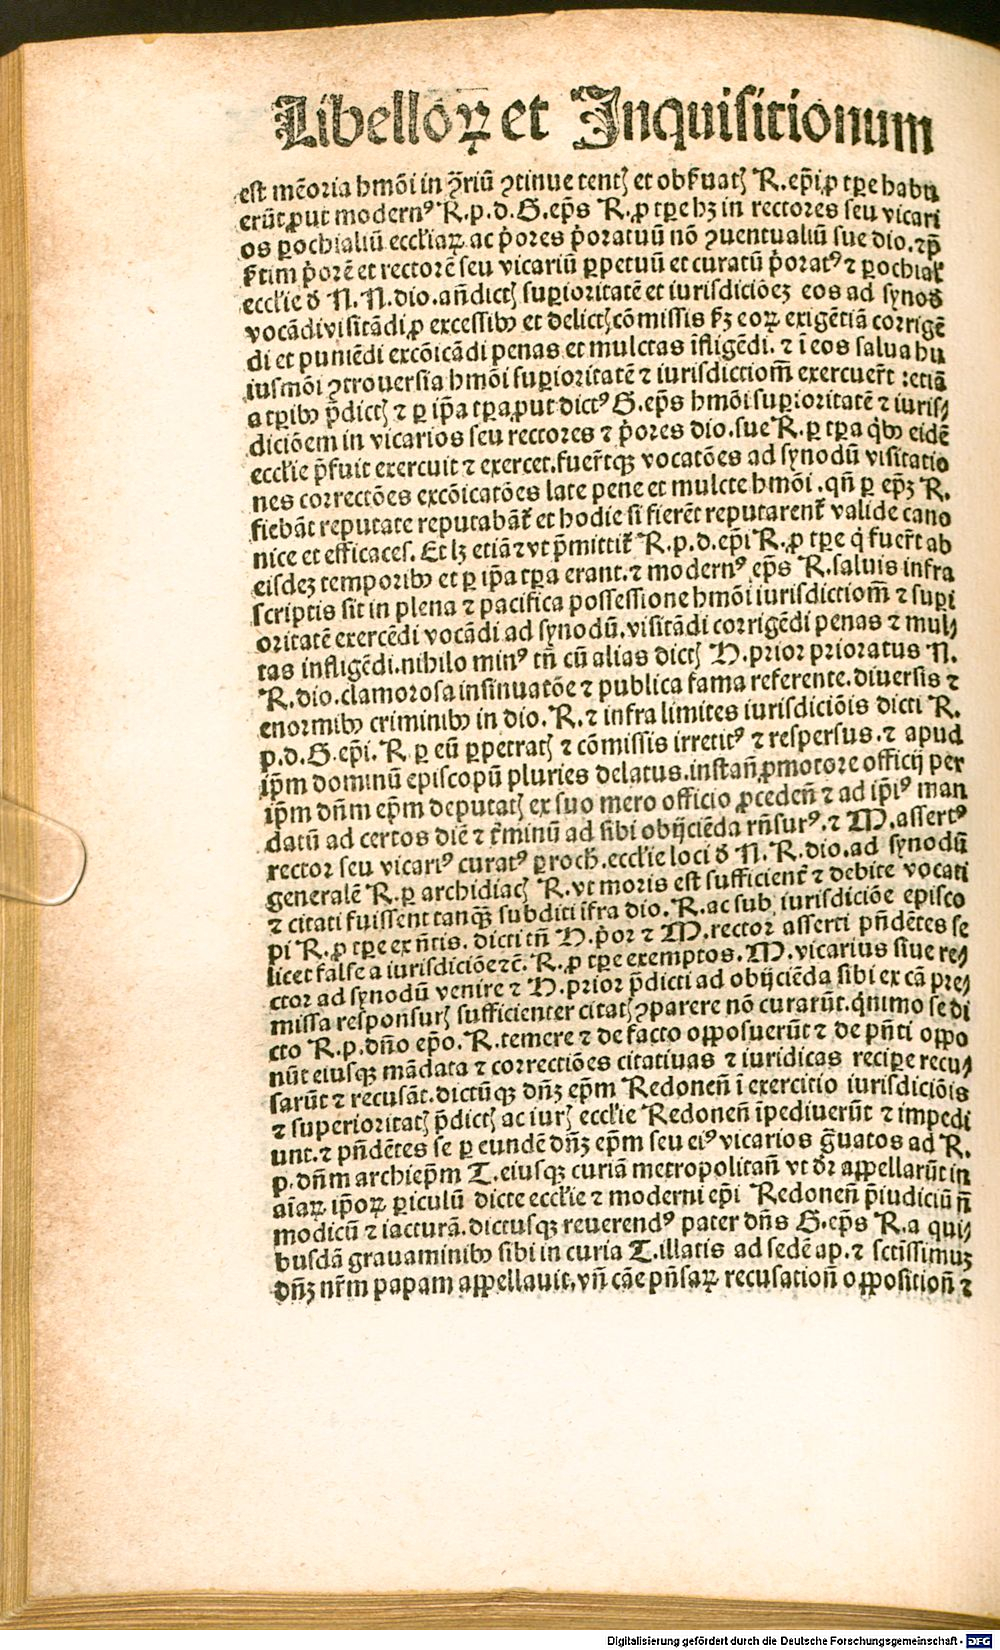 Libelloꝝ et Inquisitionum
est mẽoria hmõi in ꝯ̃riũ ꝯtinue tentꝭ et obẜuatꝭ R. ep̃i ꝓ tꝑe habu
erũt ꝓut modernꝰ R.p.d. G.ep̃s R. ꝓ tꝑe hꝫ in rectores seu vicari
os ꝑochialiũ eccł'iaꝝ ac p̓ores p̓oratuũ nõ ꝯuentualiũ sue dio. ꝛp̃
ẜtim p̓orẽ et rectorẽ seu vicariũ ꝑpetuũ et curatũ p̓oratꝰ ꝛ ꝑochial'
eccł'ie đ N. N. dio. añdictꝭ suꝑioritatẽ et iurisdiciõeꝫ eos ad synođ
vocãdi visitãdi ꝓ excessibꝰ et delictꝭ cõmissis ẜꝫ eoꝝ exigẽtiã corrigẽ
di et puniẽdi excõicãdi penas et mulctas ĩfligẽdi. ꝛ ĩ eos salua hu
iusmõi ꝯtrouersia hmõi suꝑioritatẽ ꝛ iurisdictiom̃ exercuer̃t : etiã
a tꝑibꝰ p̃dictꝭ ꝛ ꝑ ip̃a tꝑa ꝓut dictꝰ G. ep̃s hmõi suꝑioritatẽ ꝛ iuris⸗
diciõem in vicarios seu rectores ꝛ p̓ores dio. sue R. ꝑ tꝑa q̓bꝰ eidẽ
eccł'ie p̃fuit exercuit ꝛ exercet. fuer̃tqꝫ vocatões ad synodũ visitatio
nes correctões excõicatões late pene et mulcte hmõi .qñ ꝑ ep̃ꝫ R.
fiebãt reputate reputabãt᷑ et hodie si fierẽt reputarent᷑ valide cano
nice et efficaces. Et lꝫ etiã ꝛ vt p̃mittit᷑ R. p. d. ep̃i R. ꝓ tꝑe q̓ fuer̃t ab
eisdeꝫ temporibꝰ et ꝑ ip̃a tꝑa erant. ꝛ modernꝰ ep̃s R. saluis infra
scriptis sit in plena ꝛ pacifica possessione hmõi iurisdictiom̃ ꝛ suꝑi
oritatẽ exercẽdi vocãdi ad synodũ. visitãdi corrigẽdi penas ꝛ mul⸗
tas infligẽdi. nihilo minꝰ tñ cũ alias dictꝭ H. prior prioratus N.
R. dio. clamorosa insinuatõe ꝛ publica fama referente. diuersis ꝛ
enormibꝰ criminibꝰ in dio. R. ꝛ infra limites iurisdiciõis dicti R.
p. d. G. ep̃i. R. ꝑ eũ ꝑpetratꝭ ꝛ cõmissis irretitꝰ ꝛ respersus. ꝛ apud
ip̃m dominũ episcopũ pluries delatus. instañ. ꝓmotore officij per
ip̃m dñm ep̃m deputatꝭ ex suo mero officio ꝓcedeñ ꝛ ad ip̃iꝰ man
datũ ad certos diẽ ꝛ t᷑minũ ad sibi obijciẽda rñsurꝰ. ꝛ M. assertꝰ
rector seu vicariꝰ curatꝰ ꝑroch̃. eccł'ie loci đ N. R. dio. ad synodũ
generalẽ R. ꝑ archidiacꝭ R. vt moris est sufficient᷑ ꝛ debite vocati
ꝛ citati fuissent tanq̃ꝫ subditi ĩfra dio. R. ac sub iurisdiciõe episco
pi R. ꝓ tꝑe ex ñtis. dicti tñ H. p̓or ꝛ M. rector asserti pñdẽtes se
licet false a iurisdiciõe ꝛc̃. R. ꝓ tꝑe exemptos. M. vicarius siue re⸗
ctor ad synodũ venire ꝛ H. prior p̃dicti ad obijciẽda sibi ex cã pre⸗
missa responsurꝭ sufficienter citatꝭ ꝯparere nõ curarũt. q̓nimo se di
cto R. p. dño ep̃o. R. temere ꝛ de facto oꝓposuerũt ꝛ de pñti oꝓpo
nũt eiusqꝫ mãdata ꝛ correctiões citatiuas ꝛ iuridicas reciꝑe recu⸗
sarũt ꝛ recusãt. dictũqꝫ dñꝫ ep̃m Redoneñ ĩ exercitio iurisdiciõis
ꝛ superioritatꝭ p̃dictꝭ ac iurꝭ eccł'ie Redoneñ ĩpediuerũt ꝛ impedi
unt. ꝛ pñdẽtes se ꝑ eundẽ dñꝫ ep̃m seu eiꝰ vicarios g̃uatos ad R.
p. dñm archiep̃m T. eiusqꝫ curiã metropolitañ vt dr̃ aꝓpellarũt in
aĩaꝝ ip̃oꝝ ꝑiculũ dicte eccł'ie ꝛ moderni ep̃i Redoneñ p̃iudiciũ ñ
modicũ ꝛ iacturã. dictusqꝫ reuerendꝰ pater dñs G. ep̃s R. a qui⸗
busdã grauaminibꝰ sibi in curia T. illatis ad sedẽ ap. ꝛ sctĩssimuꝫ
dñꝫ nr̃m papam aꝓpellauit. vñ cãe pñsaꝝ recusationñ oꝓpositionñ ꝛ
Digitalisierung gefördert durch die Deutsche Forschungsgemeinschaft - DFG